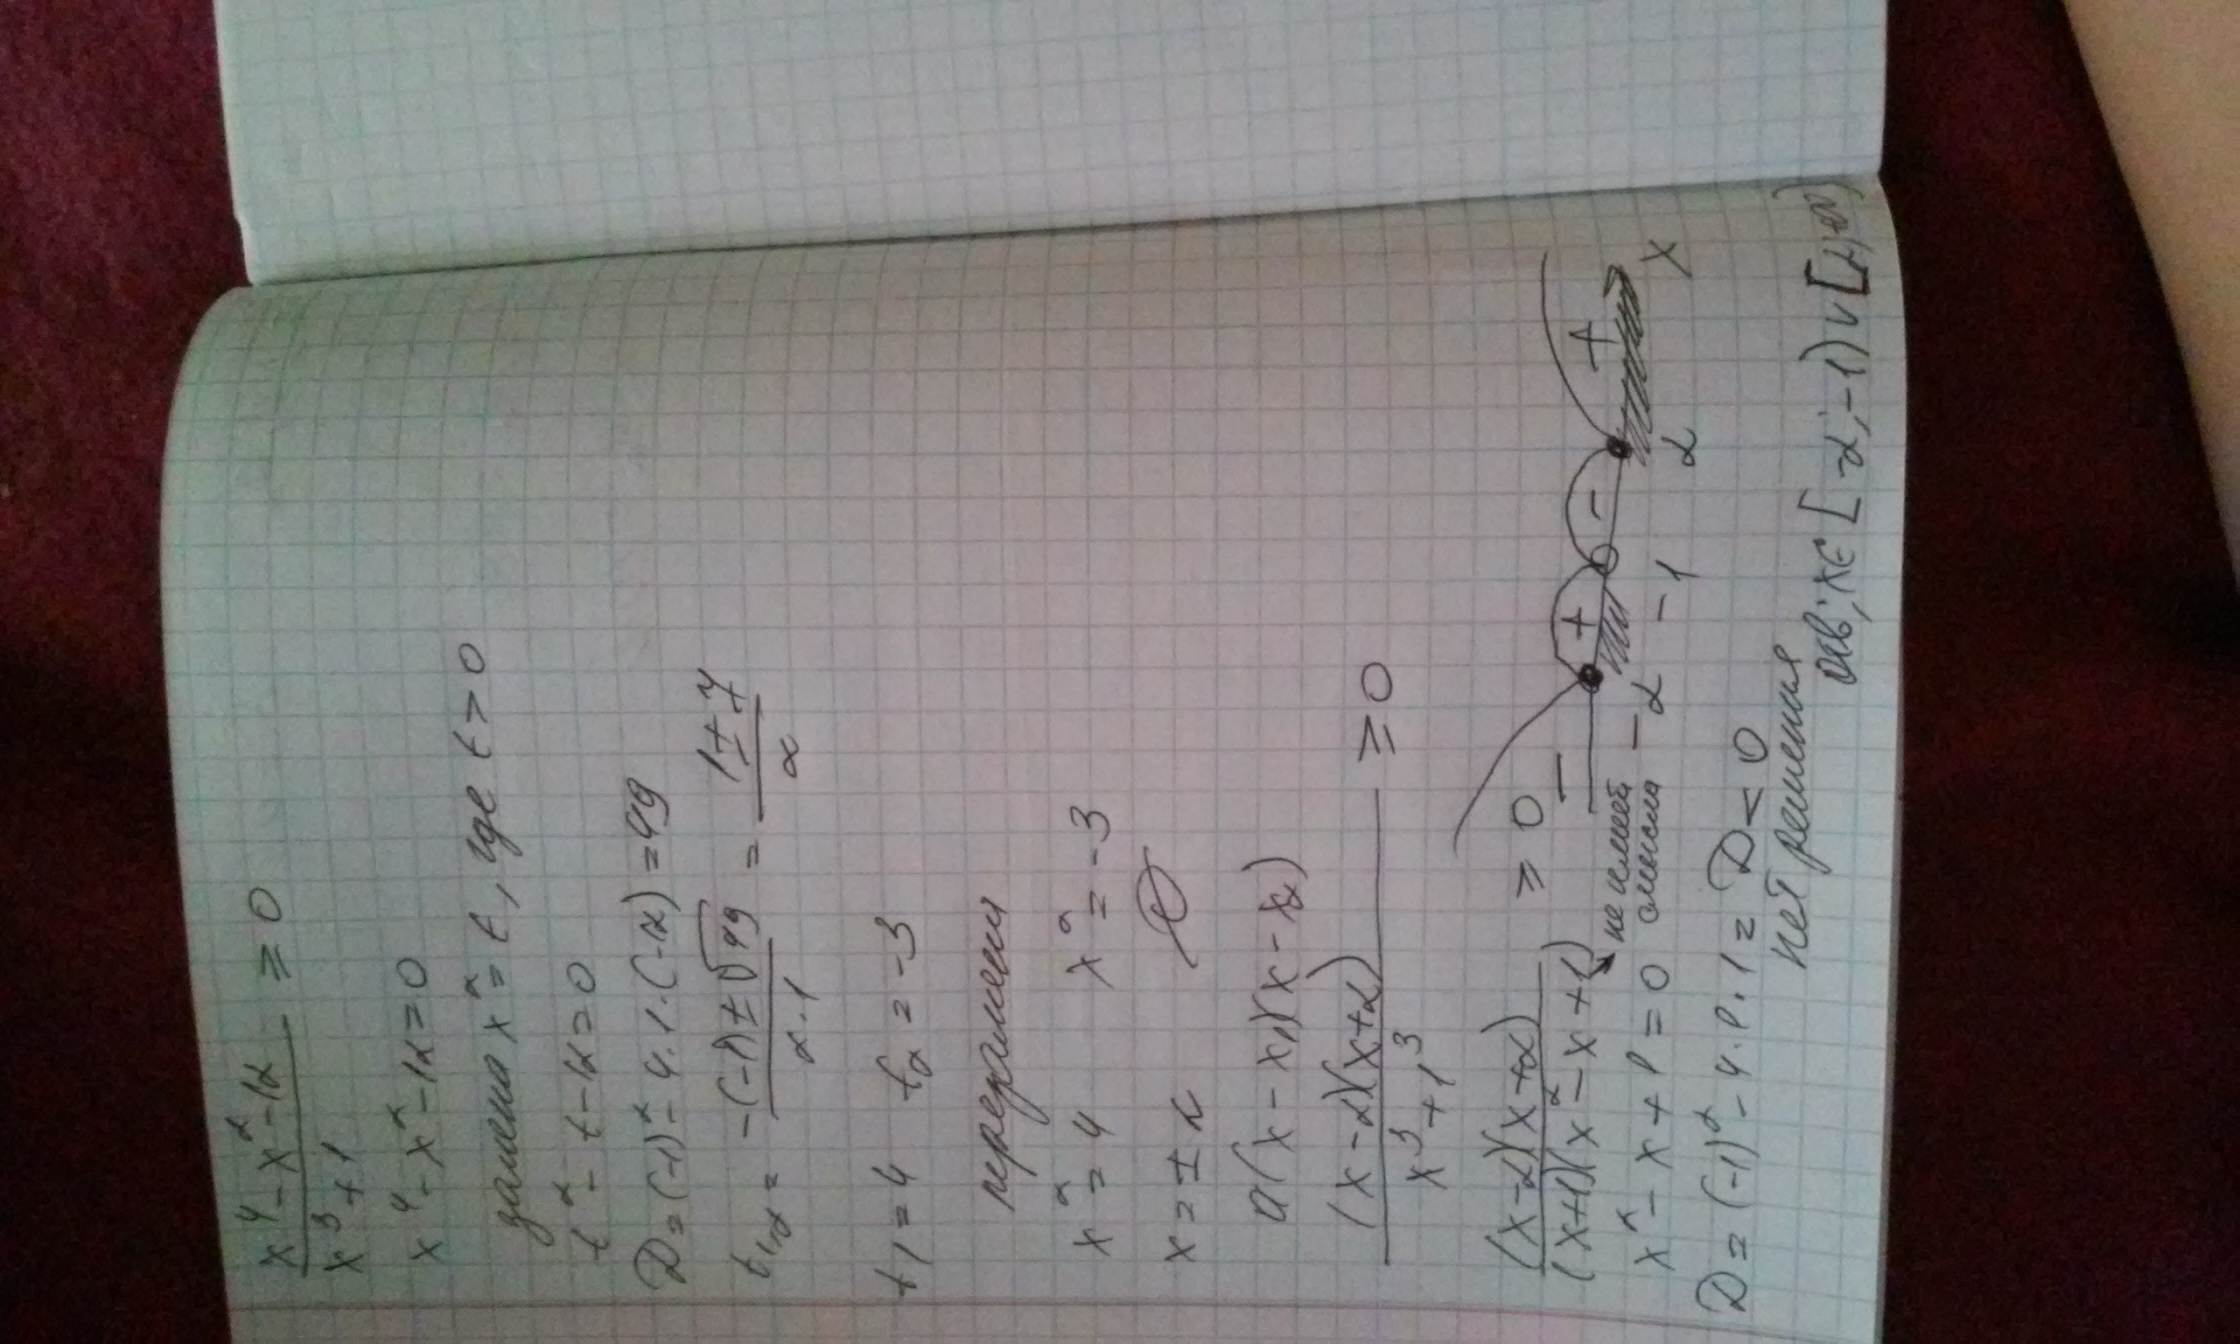 x⁴ - x² - 12 / x³ + 1 ≥ 0
x⁴ - x² - 12 = 0
замена x² = t, где t > 0
t² - t - 12 = 0
D = (-1)² - 4 · 1 · (-12) = 49
t₁,₂ = -(-1) ± √49 / 2 · 1 = 1 ± 7 / 2
t₁ = 4 t₂ = -3
x² = 4 x² = -3
x = ± 2 ∅
a(x - x₁)(x - x₂)
(x - 2)(x + 2) / x³ + 1³ ≥ 0
(x - 2)(x + 2) / (x + 1)(x² - x + 1) ≥ 0
- + - +
-2 -1 2 x
не имеет
смысла
x² - x + 1 = 0
D = (-1)² - 4 · 1 · 1 = D < 0
нет решения
отв; x ∈ [-2; -1) ∪ [2; +∞)